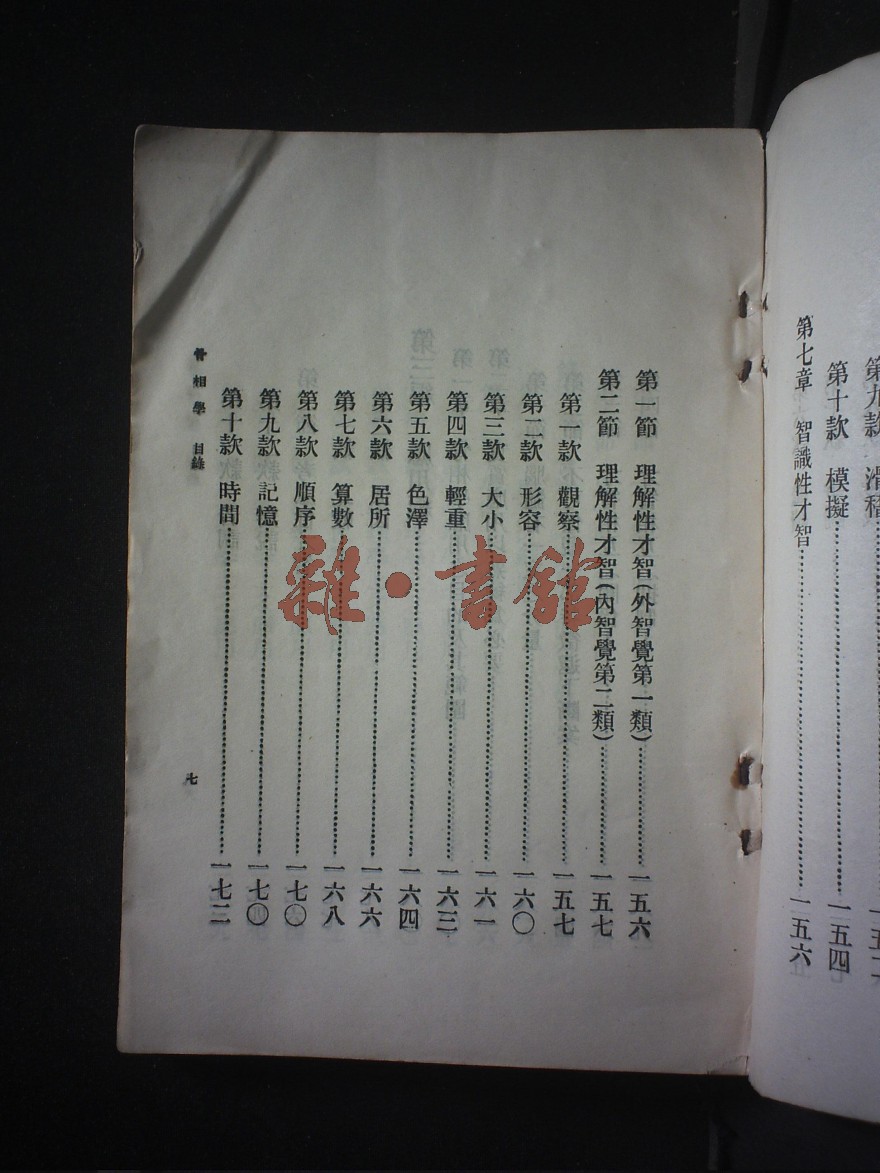 第九款 滑稽
第十款 模擬 一五四
第七章 智識性才智 一五六
第一節 理解性才智(外智覺第一類) 一五六
第二節 理解性才智(內智覺第二類) 一五七
第一款 觀察 一五七
第二款 形容 一六〇
第三款 大小 一六一
第四款 輕重 一六三
第五款 色澤 一六四
第六款 居所 一六六
第七款 算數 一六八
第八款 順序 一七〇
第九款 記憶 一七〇
第十款 時間 一七二
骨相學 目錄
七
雜·書館